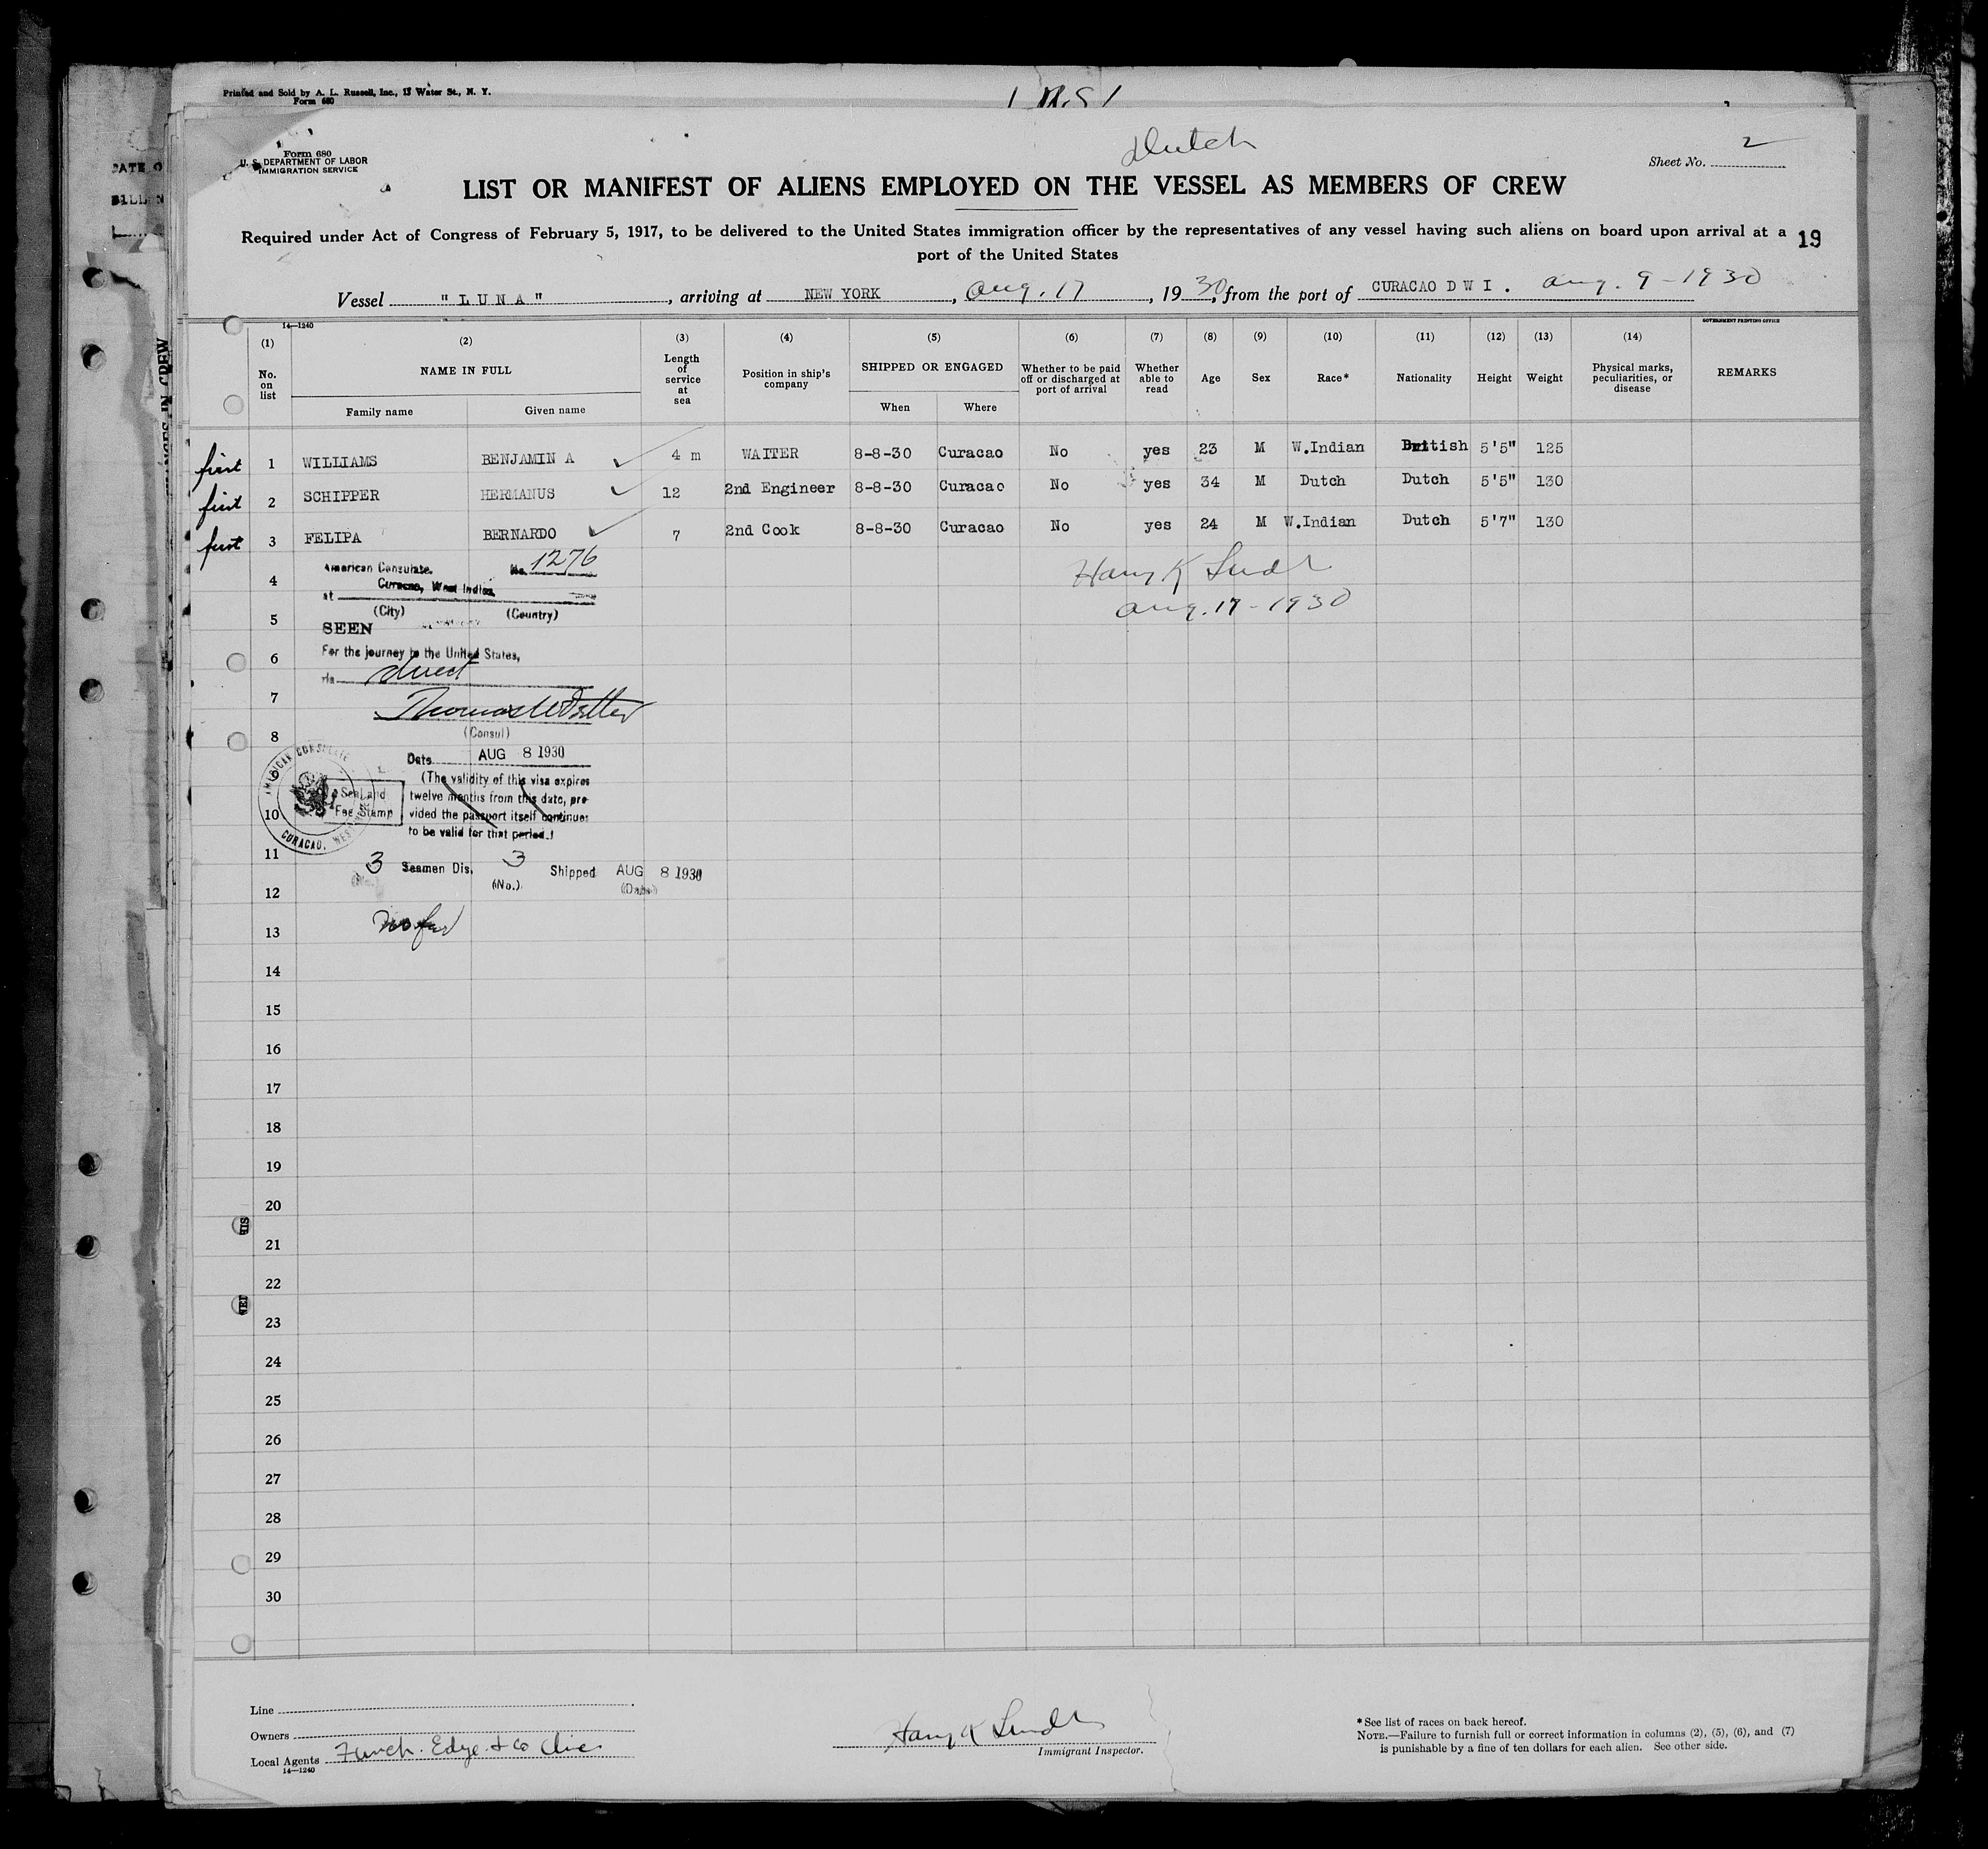 Printed and Sold by A. L. Russell, Inc., 13 Water St., N. Y.
Form 680
Form 680
U. S. DEPARTMENT OF LABOR
IMMIGRATION SERVICE
Dutch
Sheet No. 2
LIST OR MANIFEST OF ALIENS EMPLOYED ON THE VESSEL AS MEMBERS OF CREW
Required under Act of Congress of February 5, 1917, to be delivered to the United States immigration officer by the representatives of any vessel having such aliens on board upon arrival at a
port of the United States
19
Vessel "LUNA", arriving at NEW YORK, Aug. 17, 1930, from the port of CURACAO D W I. Aug. 9-1930
14—1240
GOVERNMENT PRINTING OFFICE
(1) (2) (3) (4) (5) (6) (7) (8) (9) (10) (11) (12) (13) (14)
No. on list
NAME IN FULL
Family name
Given name
Length of service at sea
Position in ship's company
SHIPPED OR ENGAGED
When
Where
Whether to be paid off or discharged at port of arrival
Whether able to read
Age
Sex
Race*
Nationality
Height
Weight
Physical marks, peculiarities, or disease
REMARKS
first 1 WILLIAMS BENJAMIN A 4 m WAITER 8-8-30 Curacao No yes 23 M W.Indian British 5'5" 125
first 2 SCHIPPER HERMANUS 12 2nd Engineer 8-8-30 Curacao No yes 34 M Dutch Dutch 5'5" 130
first 3 FELIPA BERNARDO 7 2nd Cook 8-8-30 Curacao No yes 24 M W.Indian Dutch 5'7" 130
American Consulate. No. 1276
4
at Curacao, West Indies.
(City) (Country)
Aug. 17-1930
5
SEEN
6
For the journey to the United States,
via direct
7
8
(Consul)
Date AUG 8 1930
(The validity of this visa expires
twelve months from this date, pro-
vided the passport itself continues
to be valid for that period.)
AMERICAN CONSULATE
CURACAO, WEST
Seal and
Fee Stamp
9
10
11
3 Seamen Dis. 3 Shipped AUG 8 1930
(No.) (No.) (Date)
12
No fee
13
14
15
16
17
18
19
20
21
22
23
24
25
26
27
28
29
30
Line
Owners
Local Agents Funch. Edye & Co Inc.
14—1240
Immigrant Inspector.
*See list of races on back hereof.
NOTE.—Failure to furnish full or correct information in columns (2), (5), (6), and (7)
is punishable by a fine of ten dollars for each alien. See other side.